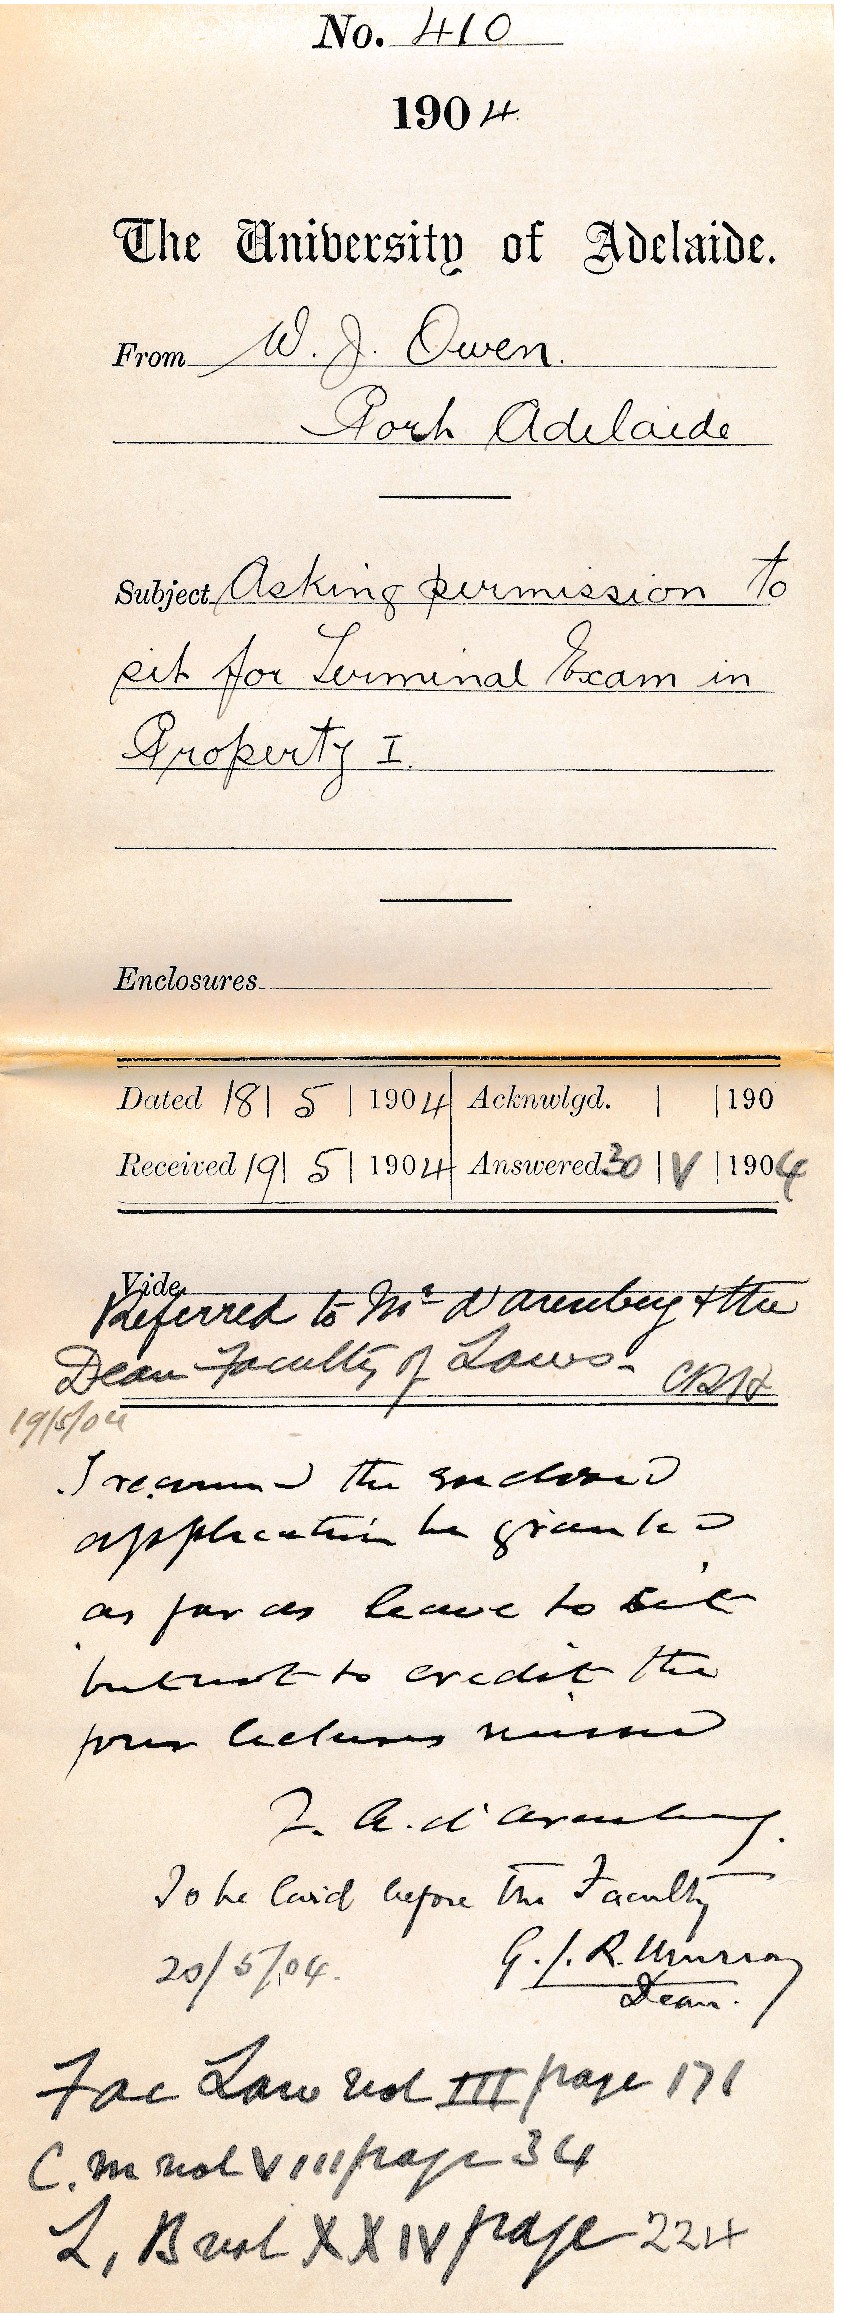 No. 410
1904
The University of Adelaide.
From W. J. Owen.
Port Adelaide
Subject Asking permission to
sit for Terminal Exam in
Property I.
Enclosures
Dated 18 | 5 | 1904 Acknwlgd. | | 190
Received 19 | 5 | 1904 Answered 30 | V | 1904
Vide
Referred to Mr d'Arenberg & the
Dean Faculty of Laws - CRH
19/5/04
I recommend the enclosed
application be granted
as far as leave to sit
but not to credit the
four lectures missed
F. A. d'Arenberg.
To be laid before the Faculty
20/5/04. G. J. R. Murray
Dean.
Fac Law vol III page 171
C. M vol VIII page 34
L, B vol XXIV page 224